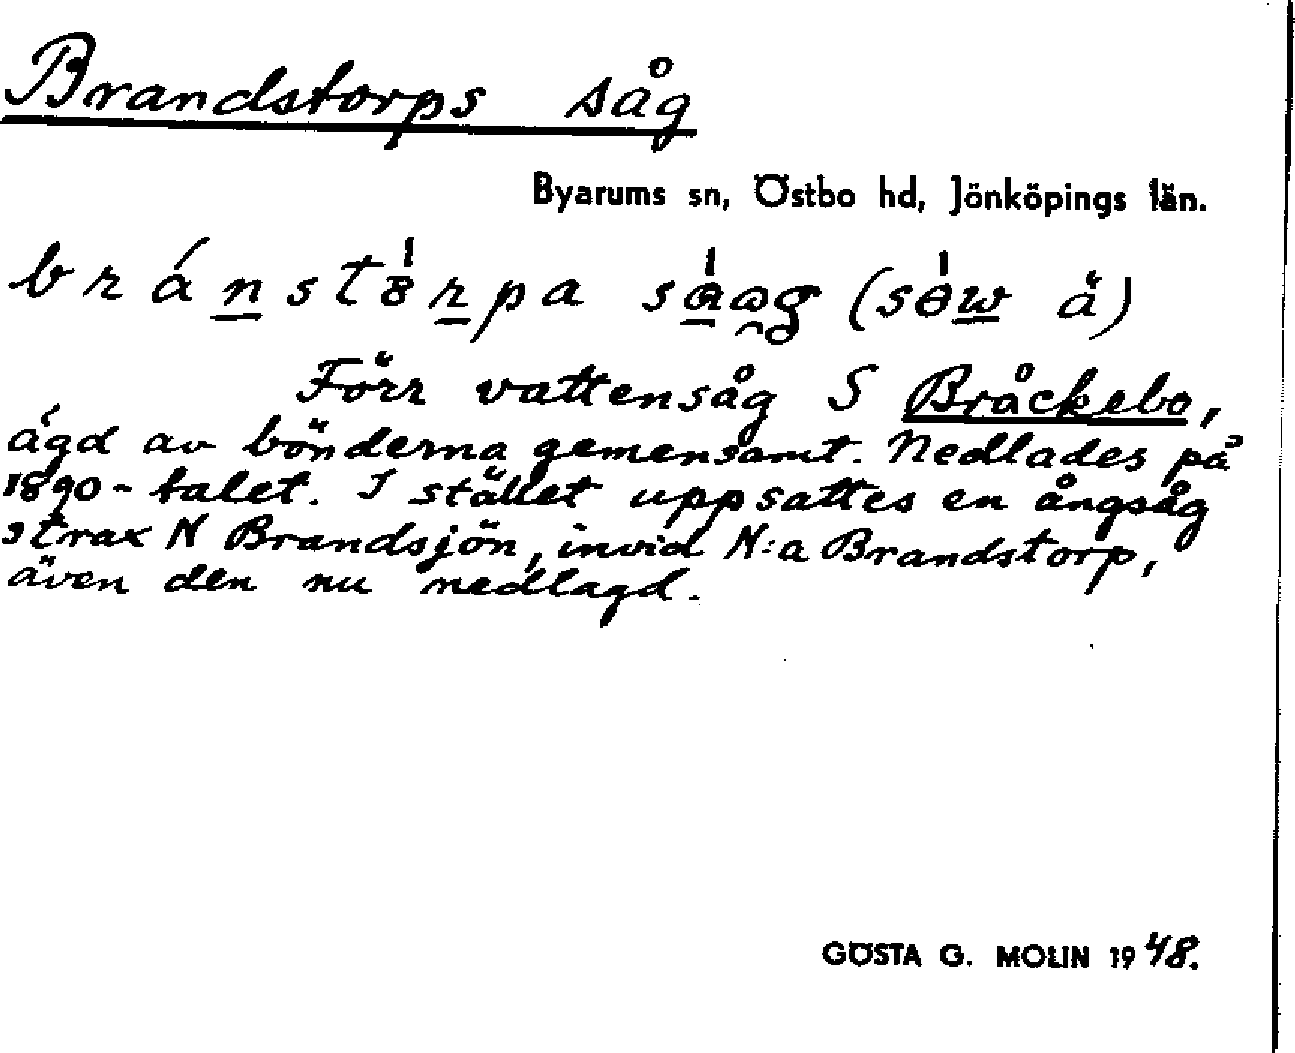 Brandstorps såg
Byarums sn, Östbo hd, Jönköpings län.
Förr vattensåg S Bråckebo,
ägd av bönderna gemensamt. Nedlades på
1890-talet. I stället uppsattes en ångsåg
strax N Brandsjön, invid N:a Brandstorp,
även den nu nedlagd.
GÖSTA G. MOLIN 1948.